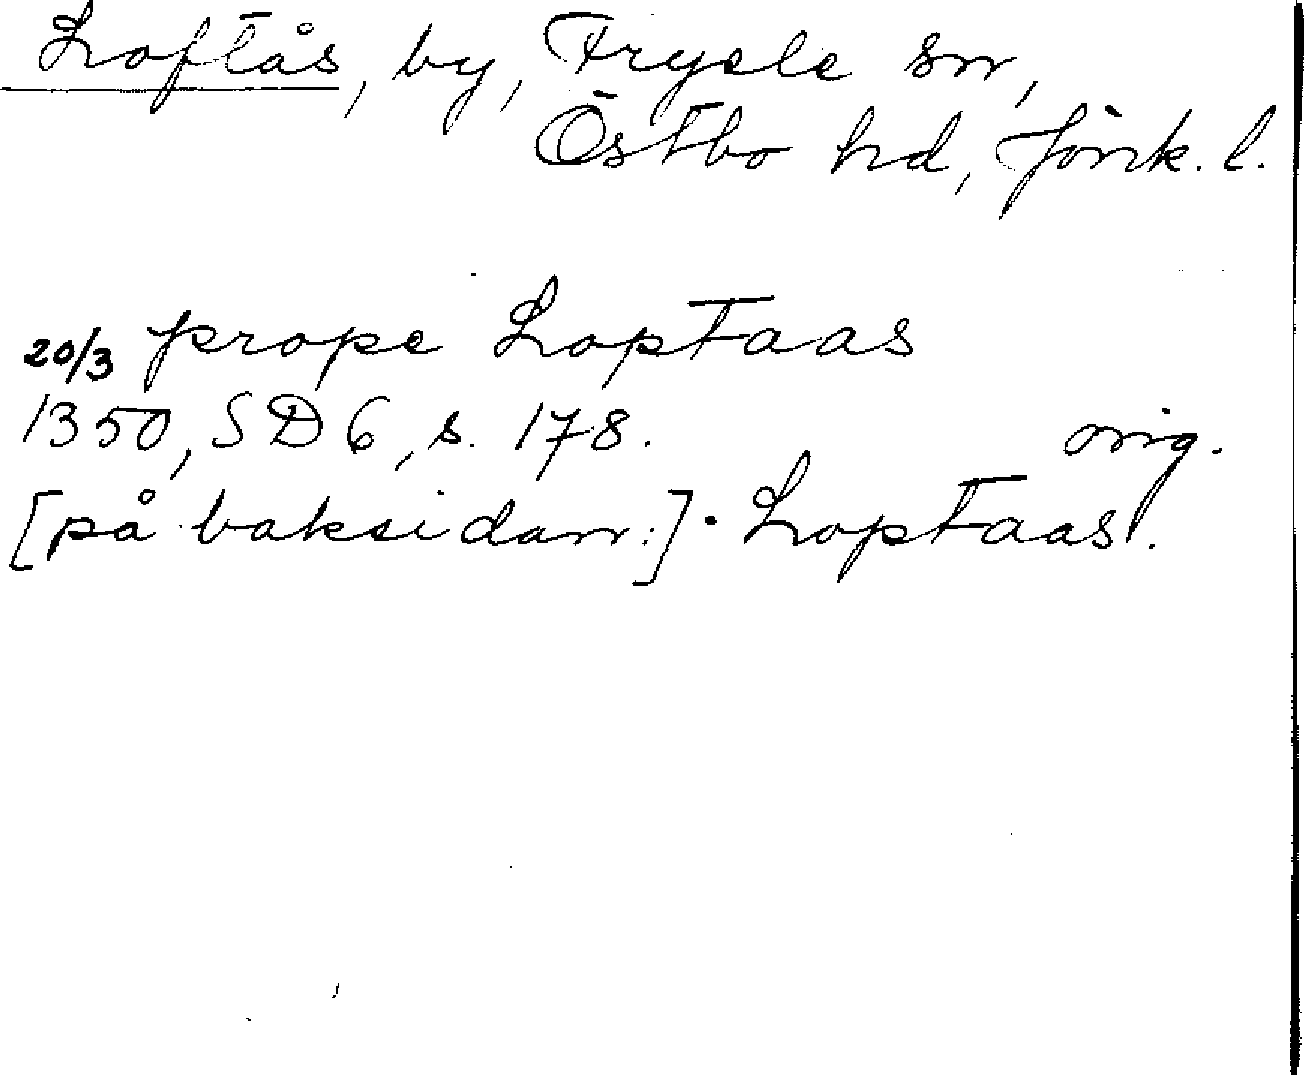 Loftås, by, Fryele sn,
Östbo hd, Jönk. l.
20/3 prope Loptaas
1350, SD 6, s. 178. orig.
[på baksidan:]. Loptaas.